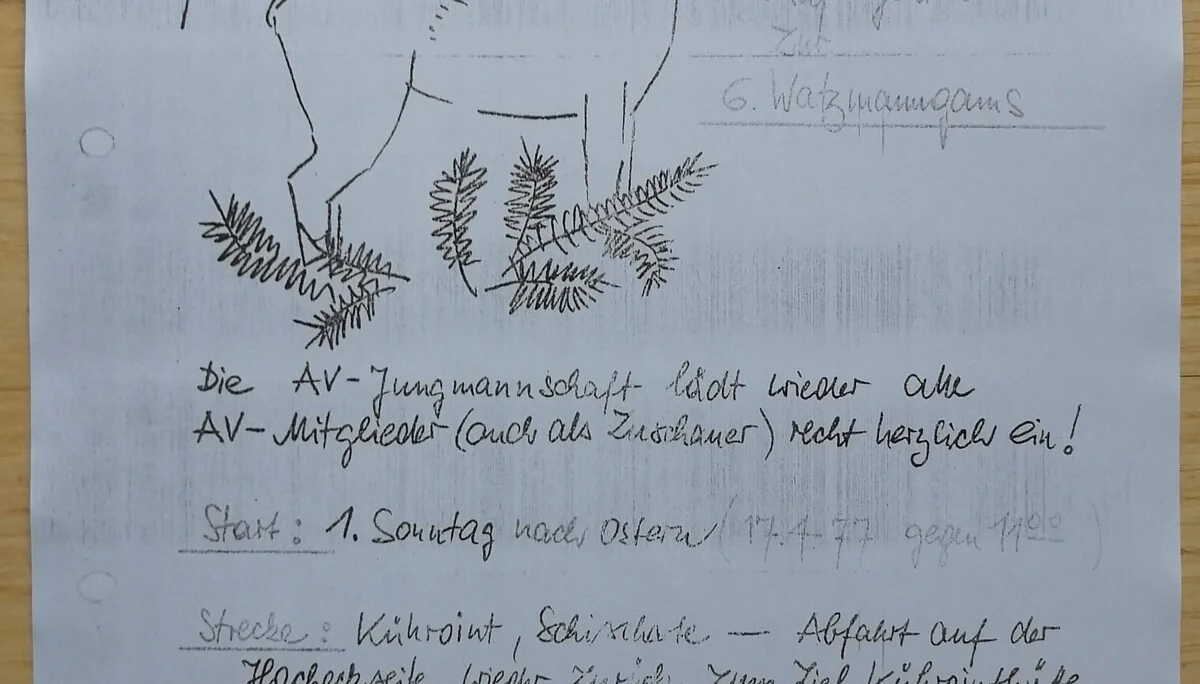 Zur
6. Watzmanngams
Die AV-Jungmannschaft lädt wieder alle
AV-Mitglieder (auch als Zuschauer) recht herzlich ein!
Start: 1. Sonntag nach Ostern (17.4.77 gegen 11⁰⁰)
Strecke: Kühroint, Schischarte — Abfahrt auf der
Hocheckseite, wieder zurück zum Ziel Kührointhütte